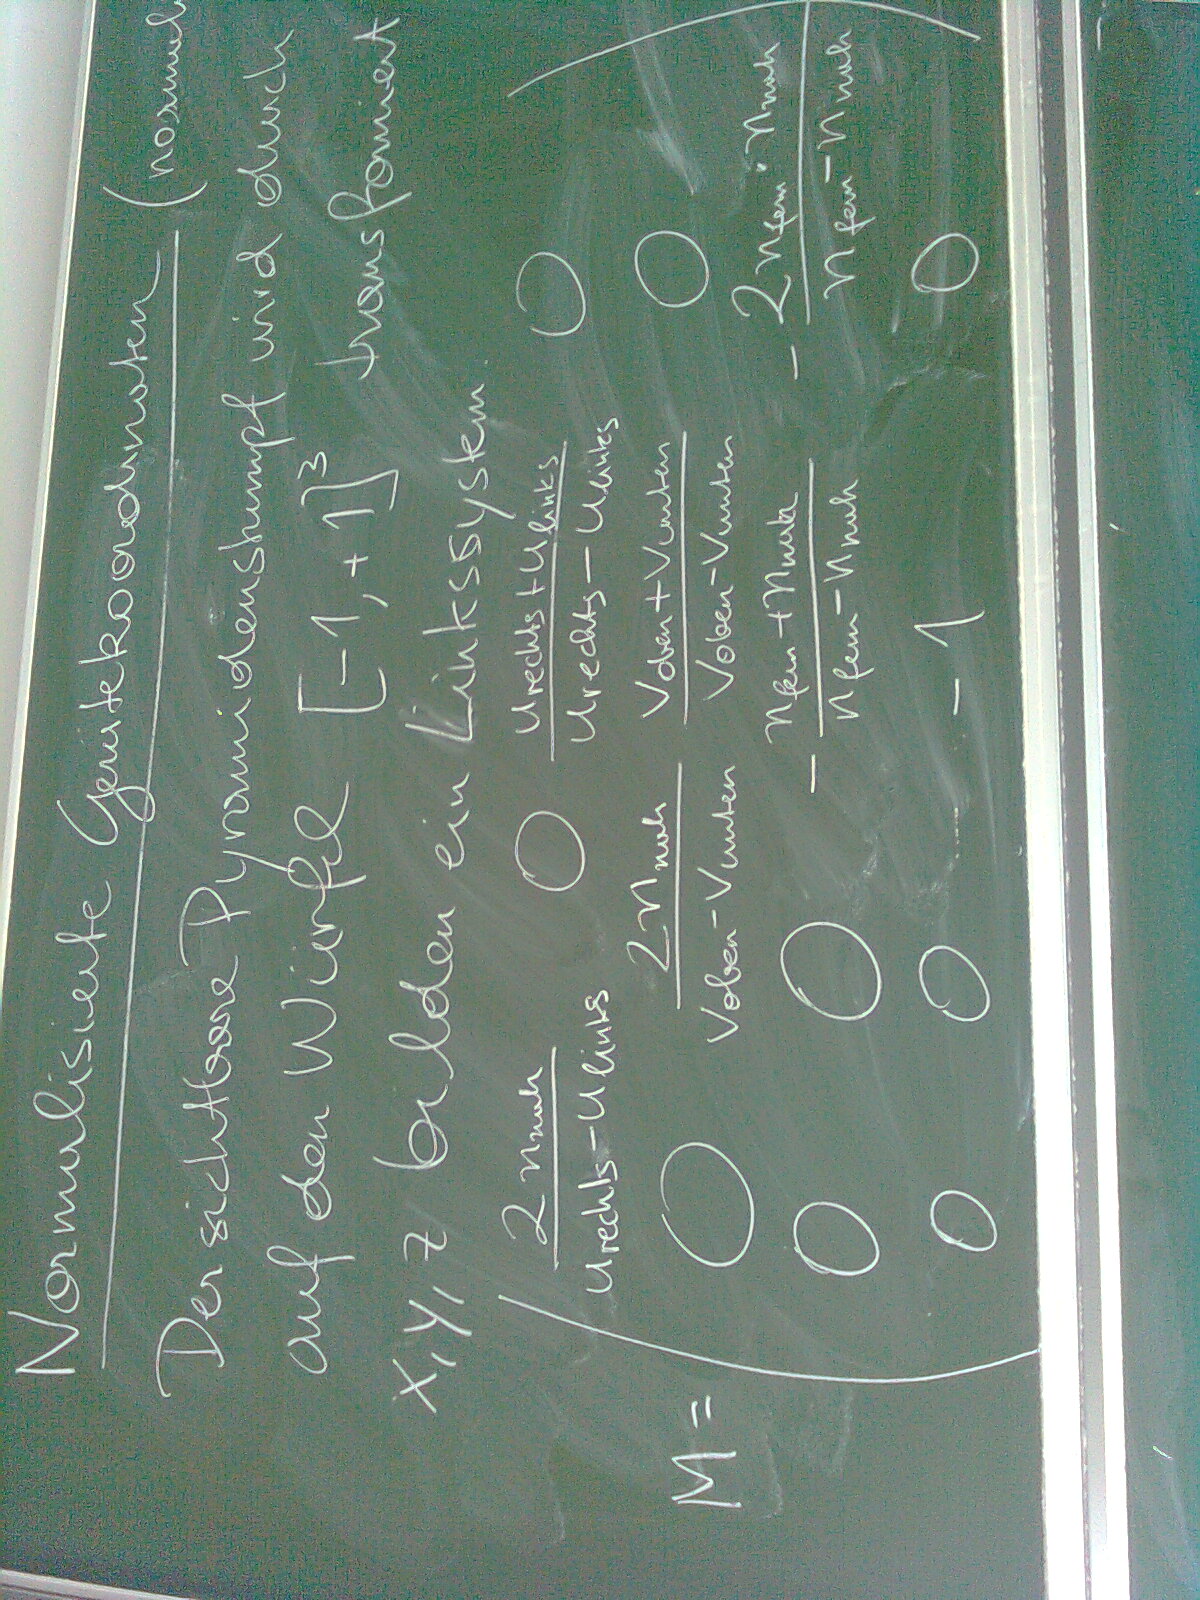 Normalisierte Gerätekoordinaten (normali
Der sichtbare Pyramidenstumpf wird durch
auf den Würfel [-1,+1]³ transformiert
x,y,z bilden ein Linkssystem
M = ( 2 n_nah / (u_rechts - u_links)   0   (u_rechts + u_links) / (u_rechts - u_links)   0 )
0   2 n_nah / (v_oben - v_unten)   (v_oben + v_unten) / (v_oben - v_unten)   0
0   0   - (n_fern + n_nah) / (n_fern - n_nah)   - 2 n_fern · n_nah / (n_fern - n_nah)
0   0   -1   0